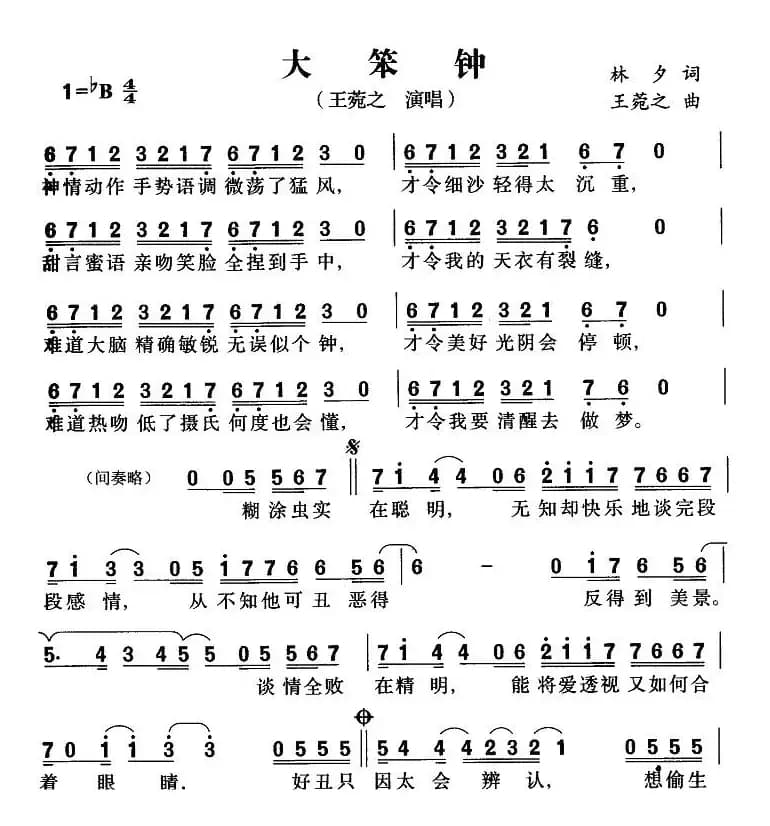 大 笨 钟
1=♭B 4/4
（王菀之 演唱）
林 夕 词
王菀之 曲
6 7 1 2 3 2 1 7 6 7 1 2 3 0 6 7 1 2 3 2 1 6 7 0
神情动作 手势语调 微荡了猛 风， 才令细沙 轻得太 沉 重，
6 7 1 2 3 2 1 7 6 7 1 2 3 0 6 7 1 2 3 2 1 7 6 0
甜言蜜语 亲吻笑脸 全捏到手 中， 才令我的 天衣有裂 缝，
6 7 1 2 3 2 1 7 6 7 1 2 3 0 6 7 1 2 3 2 1 6 7 0
难道大脑 精确敏锐 无误似个 钟， 才令美好 光阴会 停 顿，
6 7 1 2 3 2 1 7 6 7 1 2 3 0 6 7 1 2 3 2 1 7 6 0
难道热吻 低了摄氏 何度也会 懂， 才令我要 清醒去 做 梦。
（间奏略） 0 0 5 5 5 6 7 7 1 4 4 0 6 2 1 1 7 7 6 6 7
糊 涂虫实 在聪 明， 无 知却快乐 地谈完段
7 1 3 3 0 5 1 7 7 6 6 5 6 6 - 0 1 7 6 5 6
段感 情， 从 不知他可 丑 恶得 反得到 美景。
5· 4 3 4 5 5 0 5 5 6 7 7 1 4 4 0 5 2 1 1 7 7 6 6 7
谈 情全败 在精 明， 能 将爱透视 又如何合
7 0 1 1 3 3 0 5 5 5 5 4 4 4 2 3 2 1 0 5 5 5
着 眼 睛. 好丑只 因太 会 辨 认， 想偷生